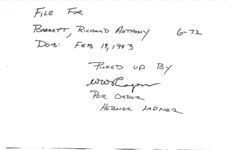 FILE FOR
BARRETT, RICHARD ANTHONY 6-72
DOB: FEB 19, 1943
PICKED UP BY
PER ORDER
HEBNER LADNER